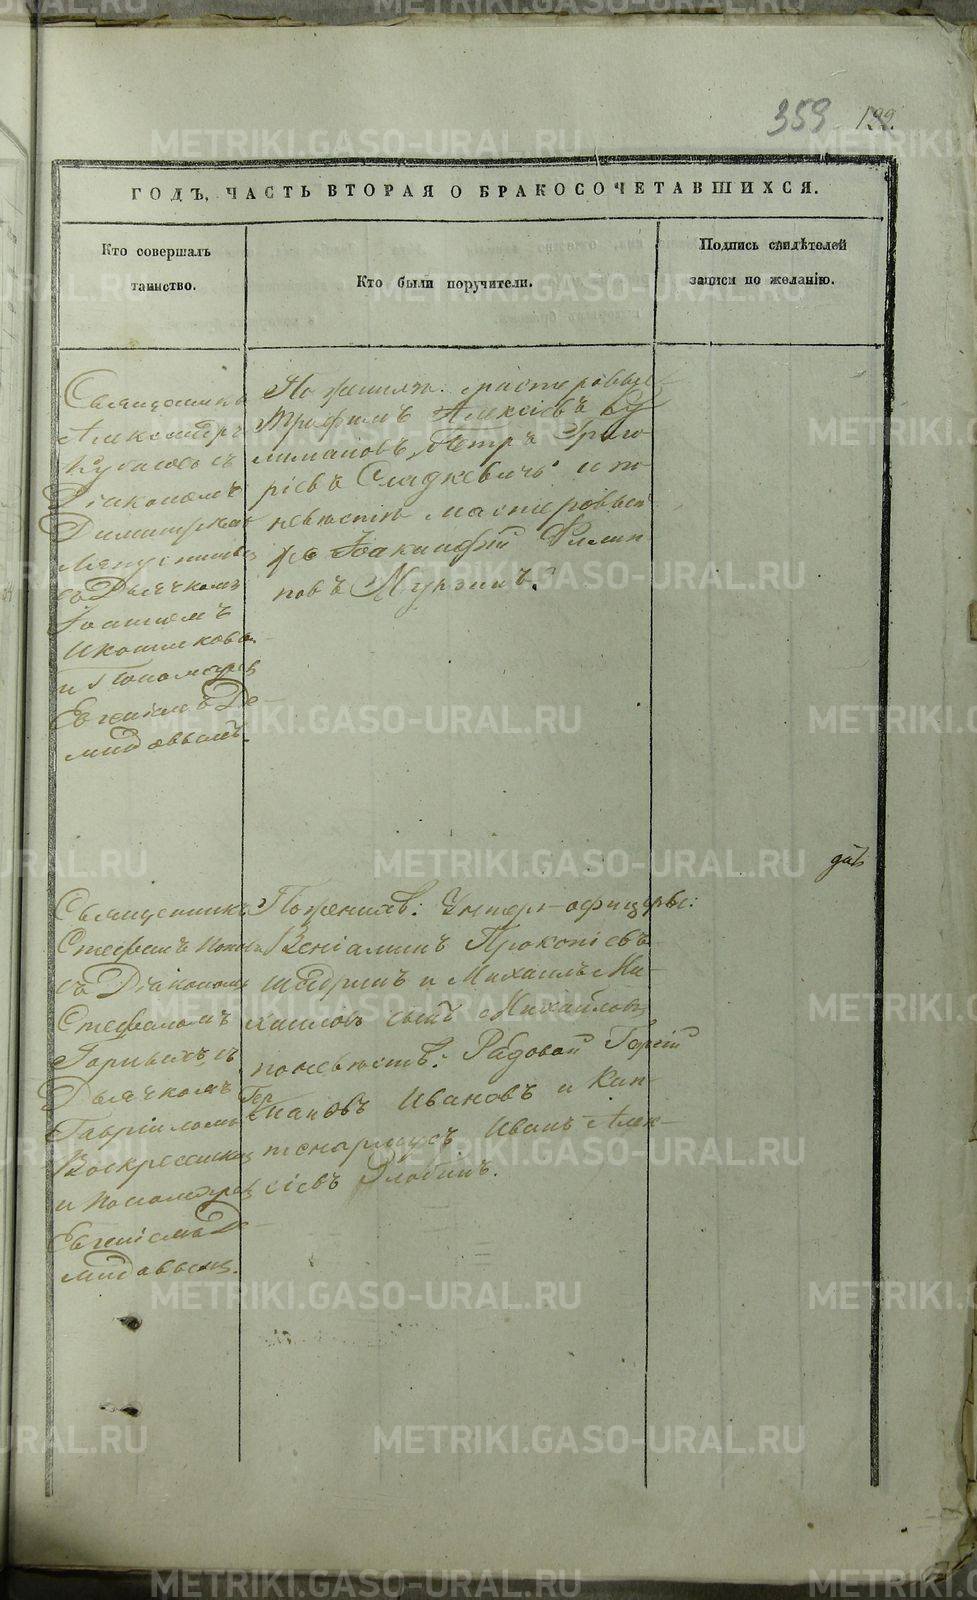 359 199.
ГОДЪ, ЧАСТЬ ВТОРАЯ О БРАКОСОЧЕТАВШИХСЯ.
Кто совершалъ
таинство.
Кто были поручители.
Подпись свидѣтелей
записи по желанію.
Священникъ
Александръ
съ
Діакономъ
Димитріемъ
съ Дьячкомъ
Іоанномъ
и Пономаремъ
Евгеніемъ Де-
мидовымъ.
По женихѣ: мастеровые
Трофимъ Алексѣевъ Су
лимановъ, Петръ Григо
ріевъ Сладкевичъ и по
невѣстѣ мастеровый
Іакинфій Филип
повъ Мурзинъ.
дат
Священникъ
Стефанъ Попов
съ Діакономъ
Стефаномъ
Горныхъ съ
Дьячкомъ
Гавріиломъ
Воскресенскимъ
и Пономаремъ
Евгеніемъ Де-
мидовымъ.
По женихѣ: Унтеръ-офицеры:
Веніаминъ Прокопіевъ
Шадринъ и Михаилъ Ми-
хаиловъ сынъ Михайловъ
по невѣстѣ: Рядовой
Ивановъ и Кап-
тенармусъ Иванъ Алек-
сіевъ Злобинъ.
METRIKI.GASO-URAL.RU